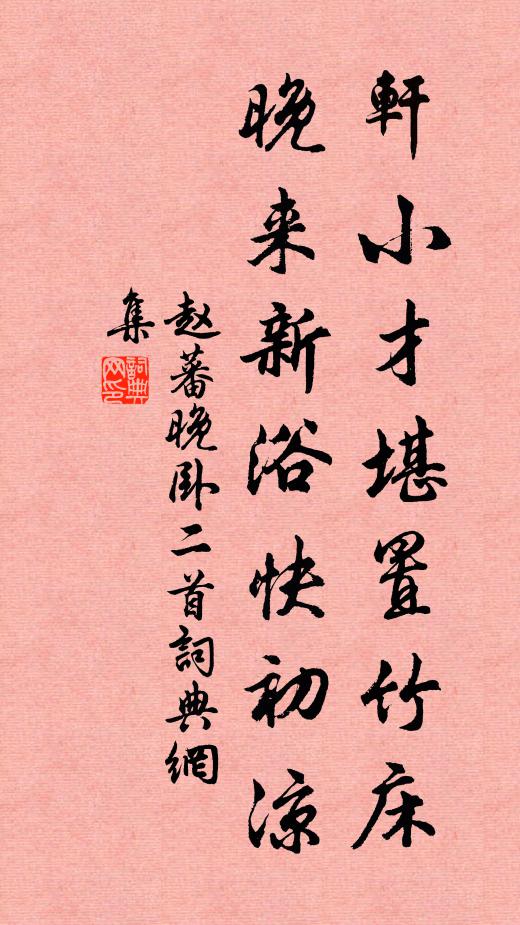 軒小才堪置竹床
晚来新浴快初涼
赵蕃晚卧二首詞典網
集
詞典
网印